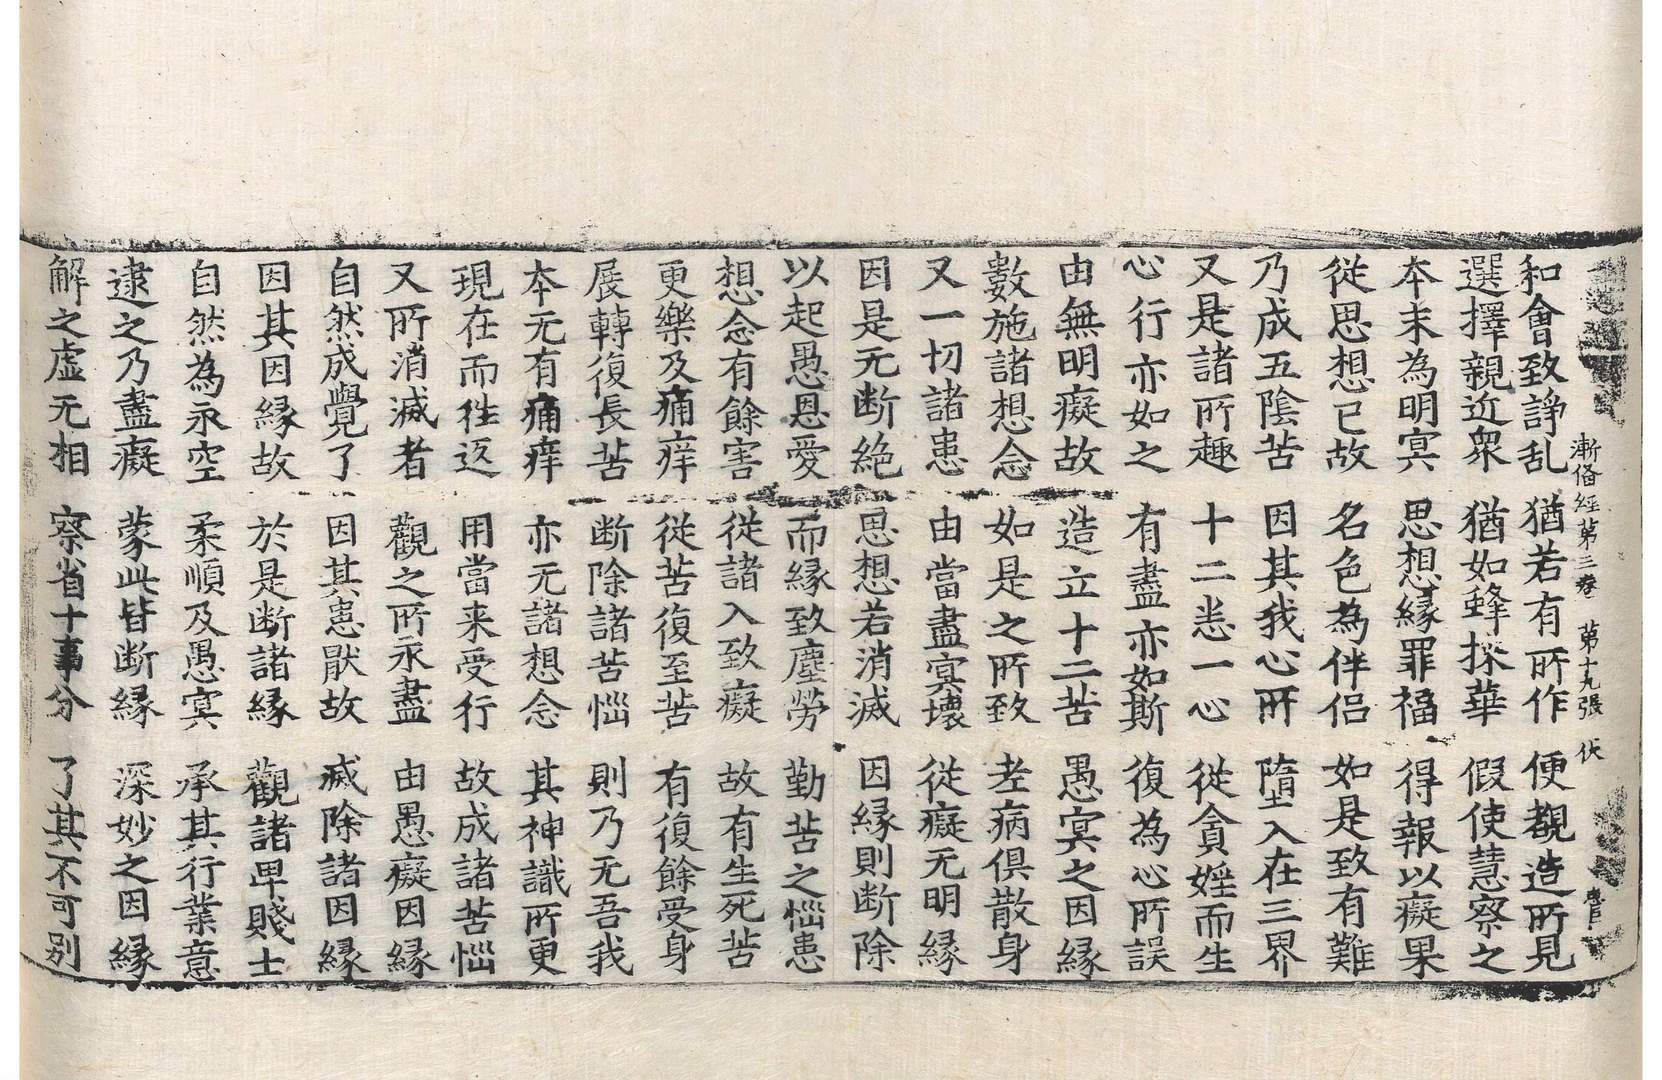 漸偹經第三卷 第十九張 伏
和會致諍乱 猶若有所作 便覩造所見
選擇親近衆 猶如蜂採華 假使慧察之
本末為明冥 思想緣罪福 得報以癡果
從思想已故 名色為伴侣 如是致有難
乃成五陰苦 因其我心所 墮入在三界
又是諸所趣 十二恙一心 從貪婬而生
心行亦如之 有盡亦如斯 復為心所誤
由無明癡故 造立十二苦 愚冥之因緣
數施諸想念 如是之所致 老病俱散身
又一切諸患 由當盡冥壞 從癡无明緣
因是无断絶 思想若消滅 因緣則断除
以起愚恩愛 而緣致塵勞 勤苦之惱患
想念有餘害 從諸入致癡 故有生死苦
更樂及痛痒 從苦復至苦 有復餘受身
展轉復長苦 断除諸苦惱 則乃无吾我
本无有痛痒 亦无諸想念 其神識所更
現在而徃返 用當来受行 故成諸苦惱
又所消滅者 觀之所永盡 由愚癡因緣
自然成覺了 因其患猒故 滅除諸因緣
因其因緣故 於是断諸緣 觀諸卑賤士
自然為永空 柔順及愚冥 承其行業意
逮之乃盡癡 蒙此皆断緣 深妙之因緣
解之虚无相 察省十事分 了其不可别